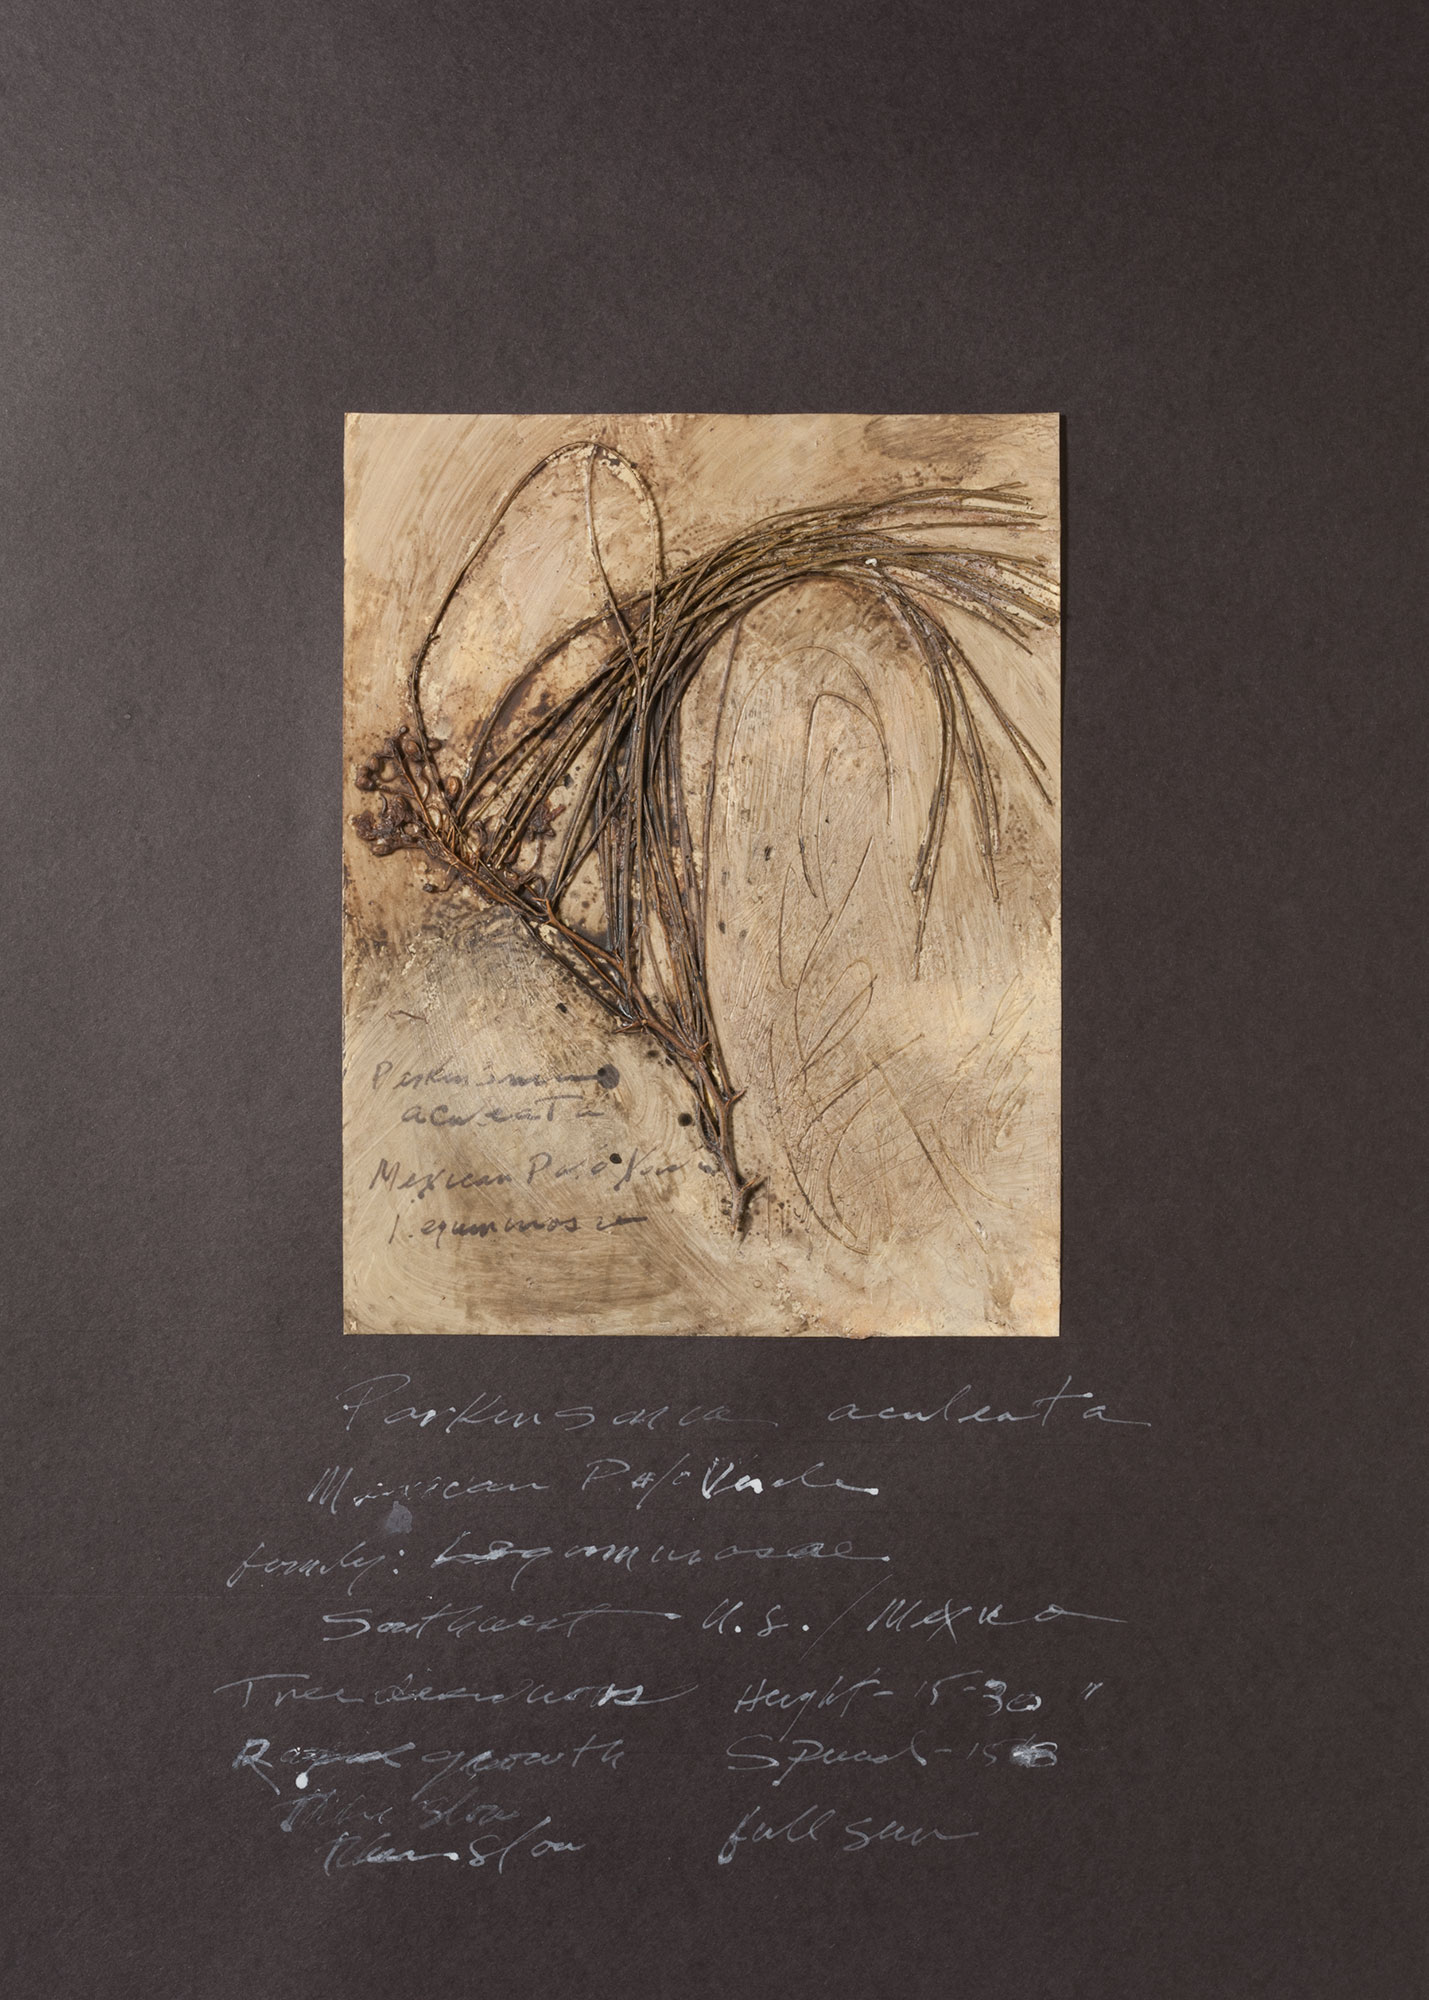 Parkinsonia
aculeata
Mexican Palo Verde
Leguminosae
Parkinsonia aculeata
Mexican Palo Verde
family: Leguminosae
Southwest U.S. / Mexico
Tree deciduous Height - 15-30 "
Rapid growth Spread - 15
then slow
then slow full sun